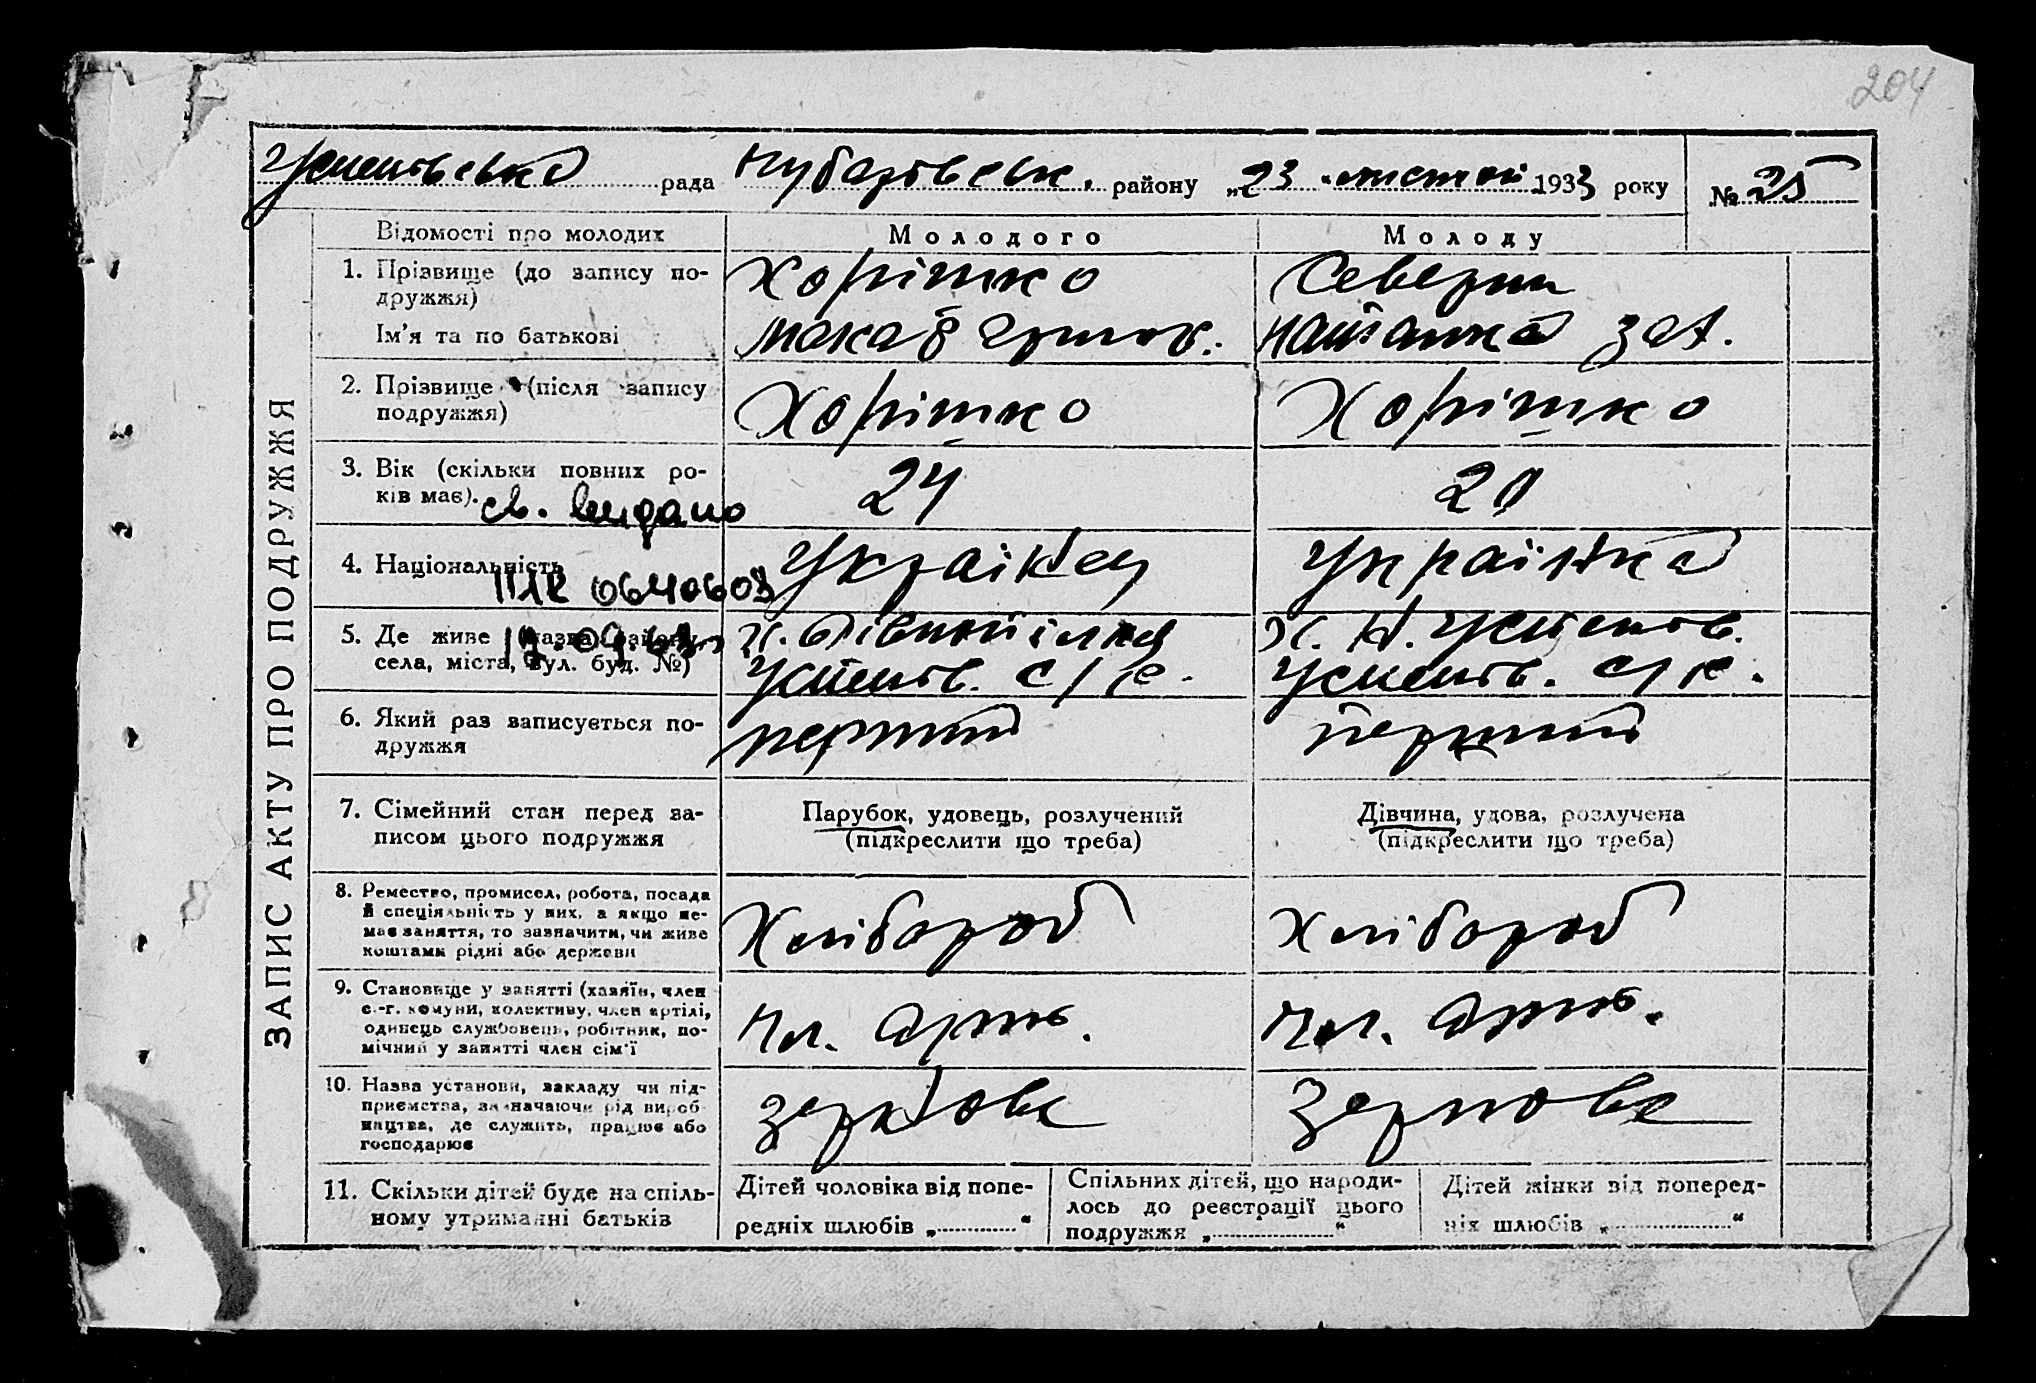 204
Успенівська рада Чубарівськ. району „23“ листопад 1933 року № 25
ЗАПИС АКТУ ПРО ПОДРУЖЖЯ
Відомості про молодих Молодого Молоду
1. Прізвище (до запису по-
дружжя)
Хорішко Северин
Ім'я та по батькові
Макар
2. Прізвище (після запису
подружжя)
Хорішко Хорішко
3. Вік (скільки повних ро-
ків має).
24 20
св. видано
4. Національність
Українец Українка
0640603
5. Де живе (назва району,
села, міста, вул. буд. №)
Х. Х. Н. Успенов.
Успенов. с/р. Успенов. с/р.
6. Який раз записується по-
дружжя
перший перший
7. Сімейний стан перед за-
писом цього подружжя
Парубок, удовець, розлучений
(підкреслити що треба)
Дівчина, удова, розлучена
(підкреслити що треба)
8. Ремество, промисел, робота, посада
й спеціяльність у них, а якщо не-
має заняття, то зазначити, чи живе
коштами рідні або держави
Хлібороб Хлібороб
9. Становище у занятті (хазяїн, член
с.-г. комуни, колективу, член артілі,
одинець службовець, робітник, по-
мічний у занятті член сім'ї
Чл. артіл. Чл. артіл.
10. Назва установи, закладу чи під-
приємства, зазначаючи рід вироб-
ництва, де служить, працює або
господарює
Зернове Зернове
11. Скільки дітей буде на спіль-
ному утриманні батьків
Дітей чоловіка від попе-
редніх шлюбів „ “
Спільних дітей, що народи-
лось до реєстрації цього
подружжя „ “
Дітей жінки від поперед-
ніх шлюбів „ “